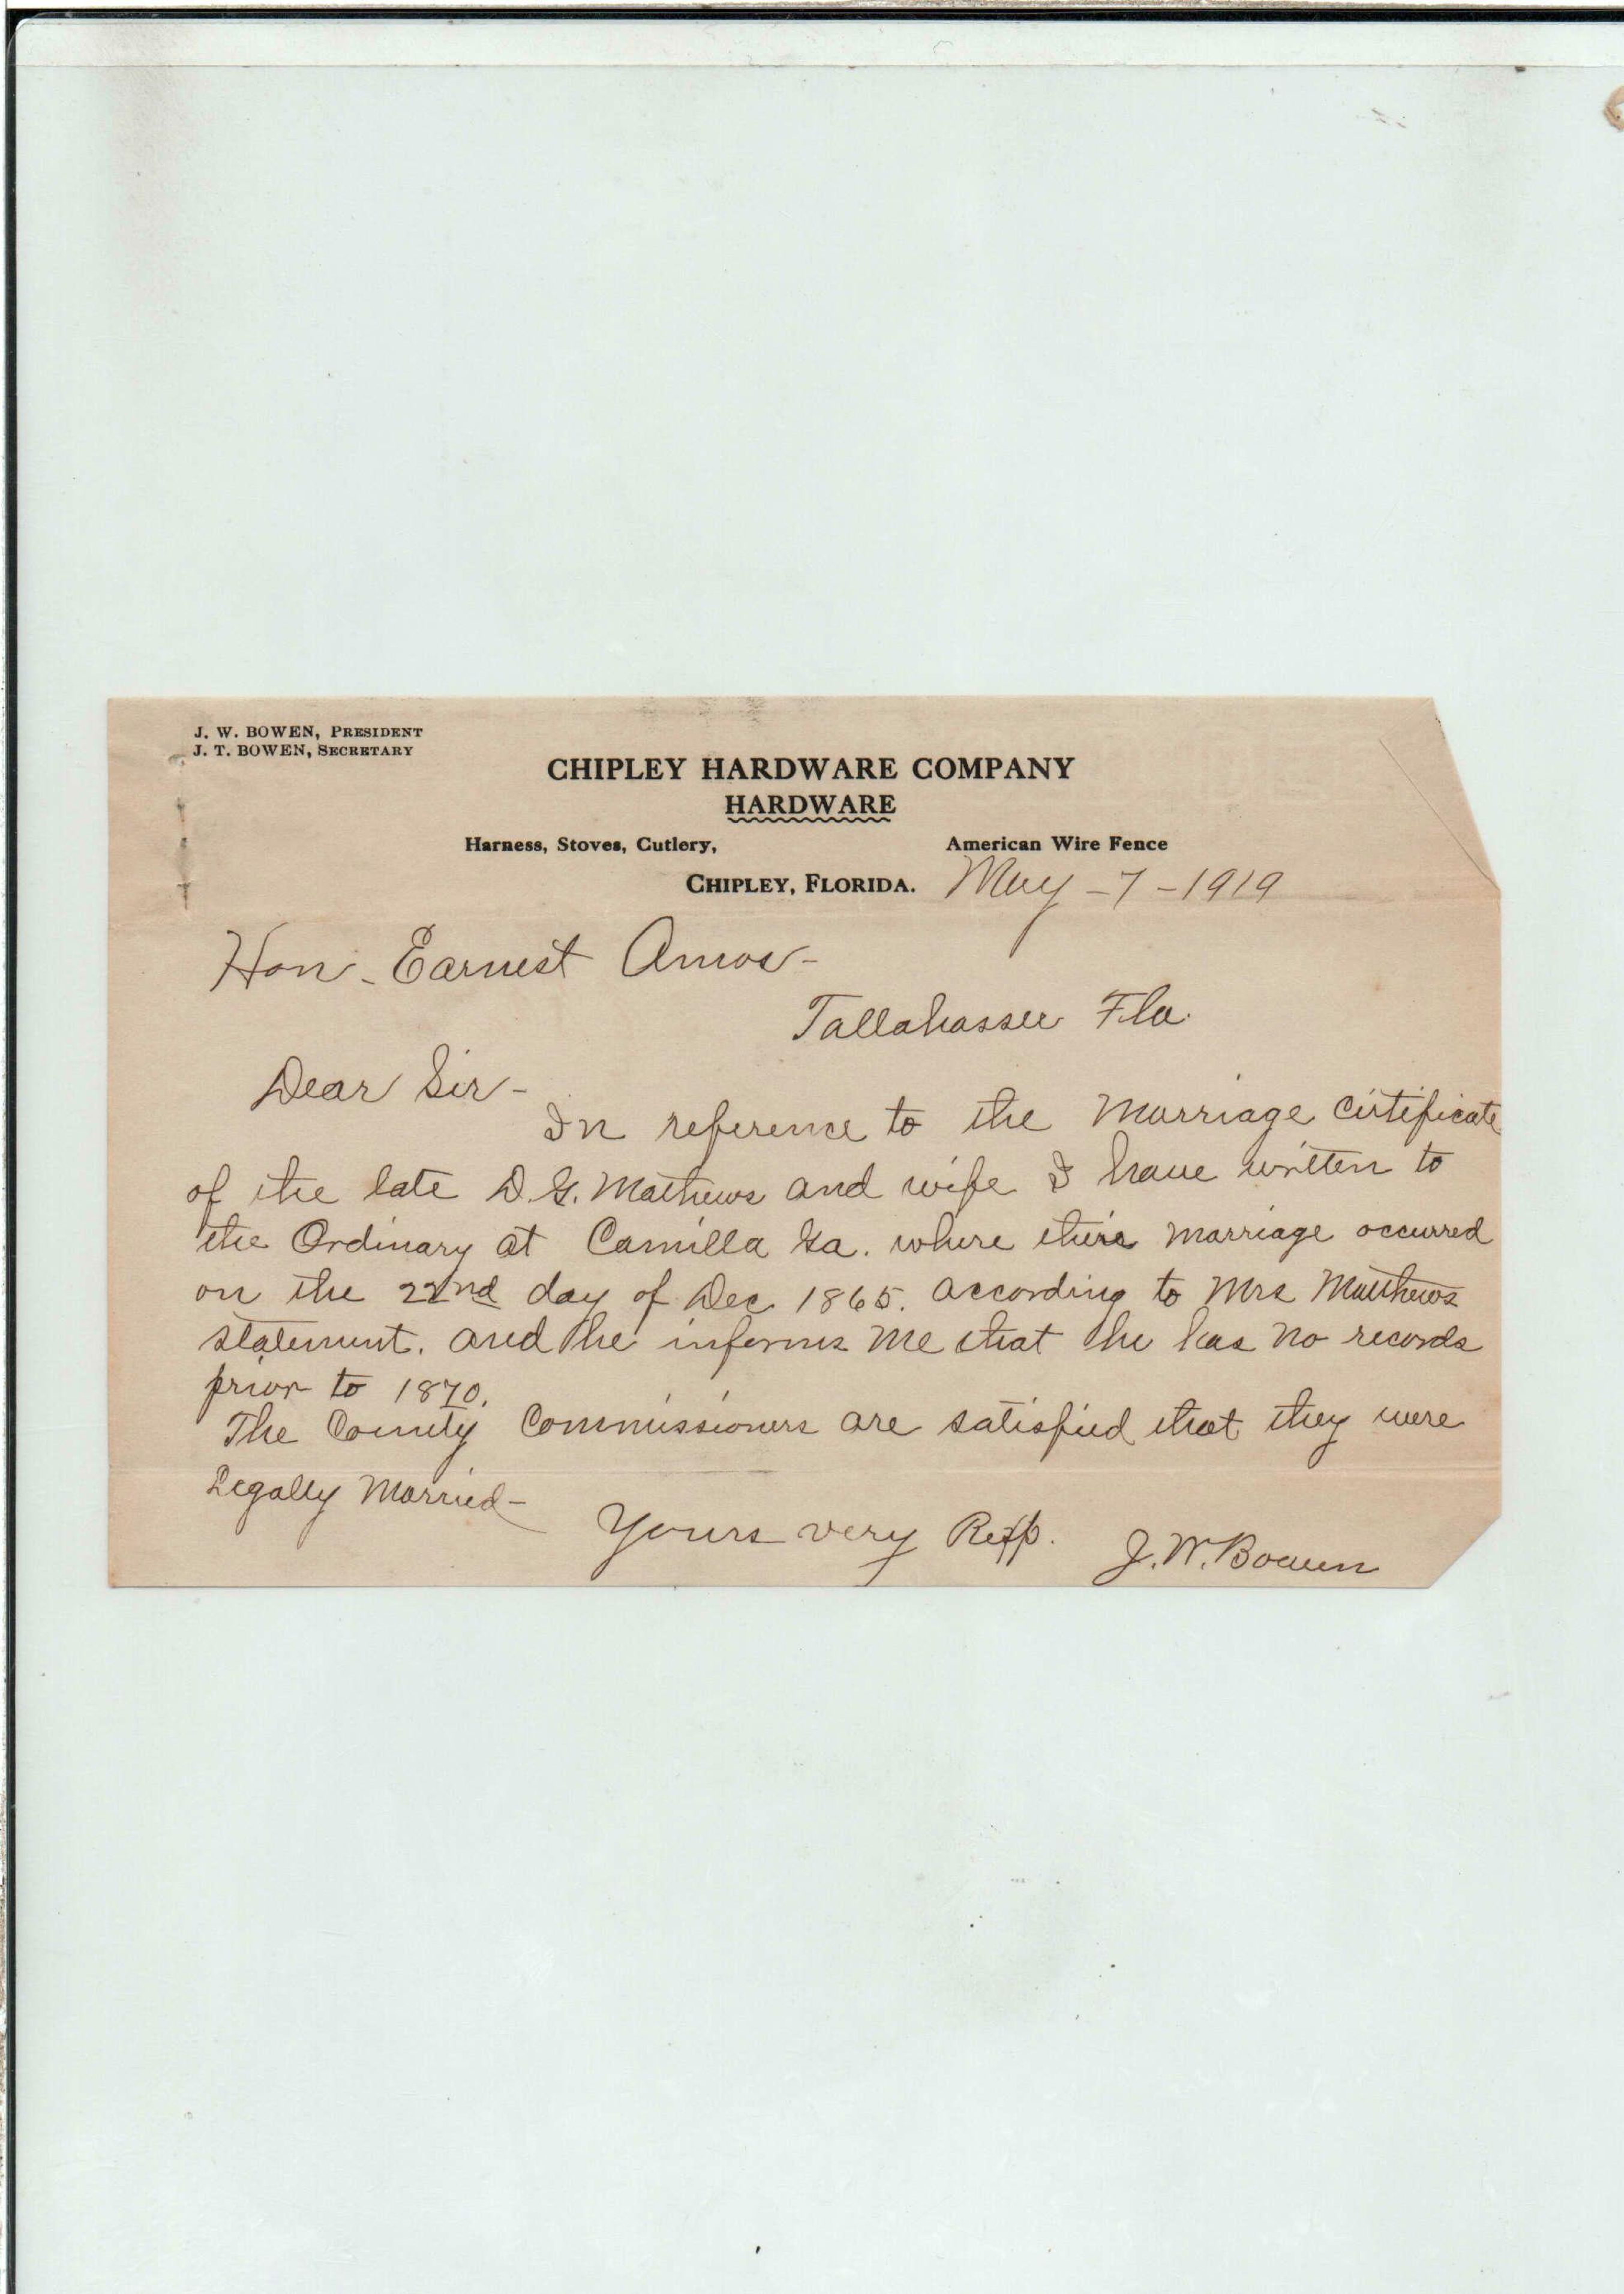 J. W. BOWEN, PRESIDENT
J. T. BOWEN, SECRETARY
CHIPLEY HARDWARE COMPANY
HARDWARE
Harness, Stoves, Cutlery, American Wire Fence
CHIPLEY, FLORIDA. May - 7 - 1919
Hon - Earnest Amos -
Tallahassee Fla.
Dear Sir -
In reference to the Marriage Certificate
of the late D. G. Mathews and wife I have written to
the Ordinary at Camilla Ga. where their marriage occurred
on the 22nd day of Dec 1865. according to Mrs Matthews
statement. and he informs me that he has no records
prior to 1870.
The County Commissioners are satisfied that they were
Legally Married -
Yours very Resp. J. W. Bowen